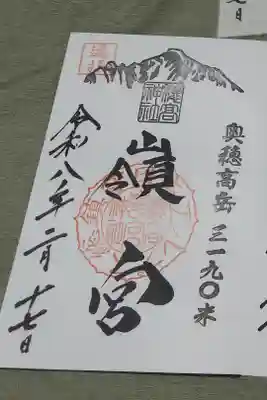 奥穂高岳 三一九〇米
穂高
神社
嶺宮
令和八年二月十七日